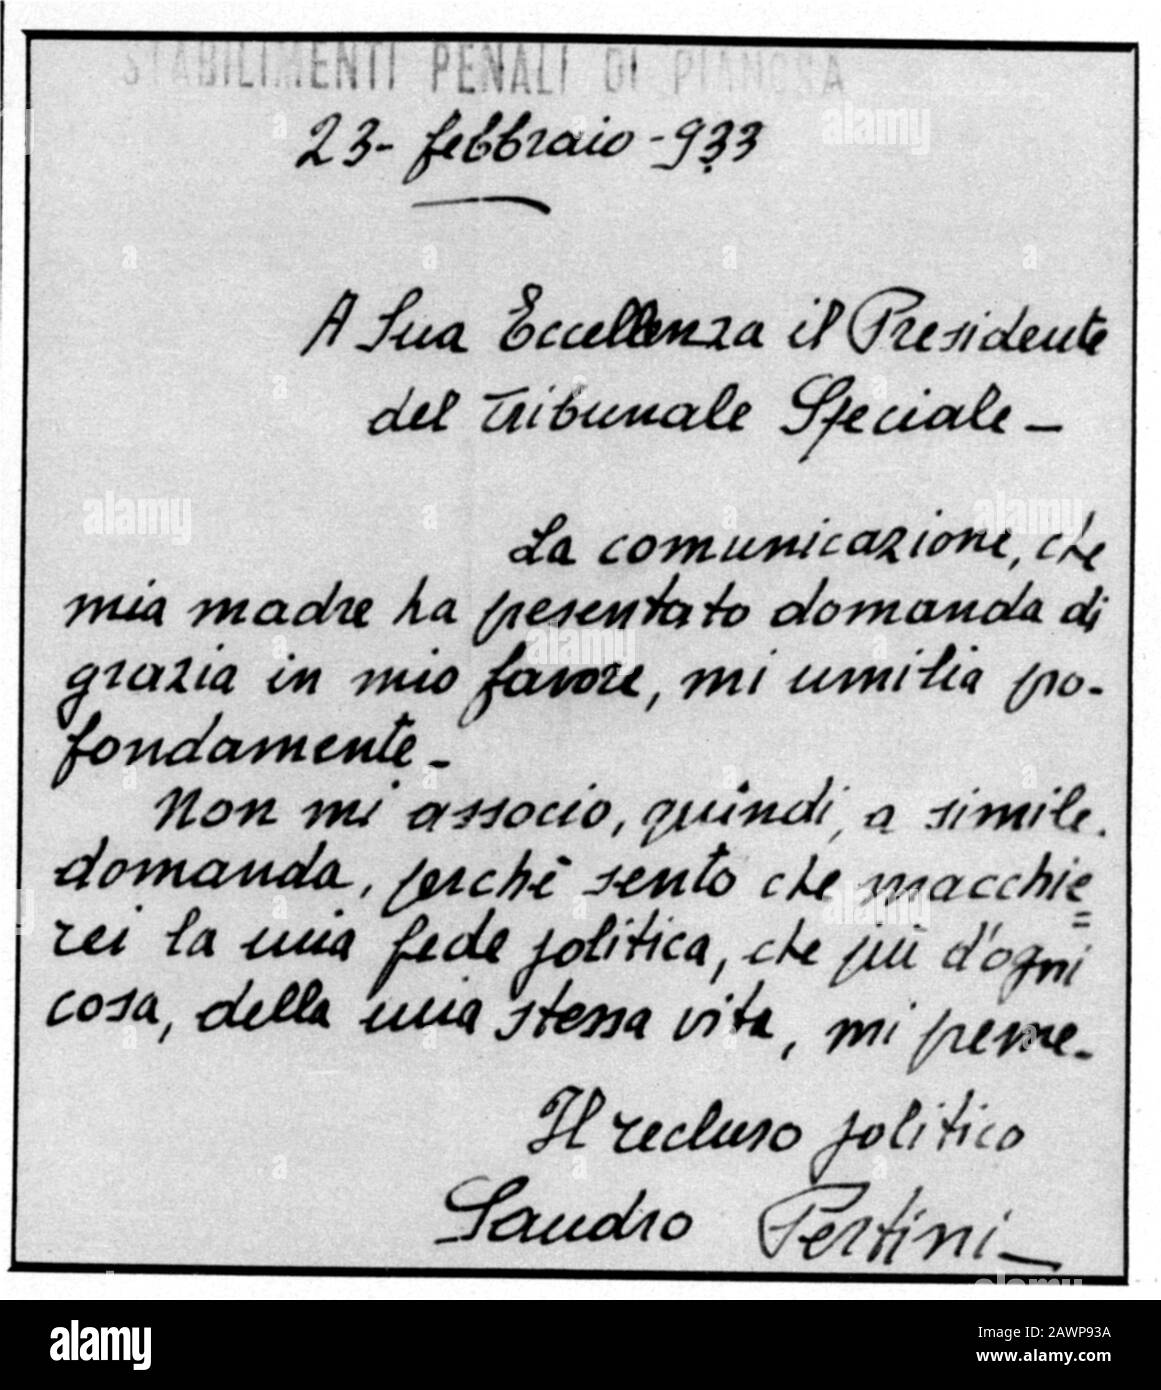 STABILIMENTI PENALI DI PIANOSA
23- febbraio -933
A Sua Eccellenza il Presidente
del Tribunale Speciale -
La comunicazione, che
mia madre ha presentato domanda di
grazia in mio favore, mi umilia pro-
fondamente -
Non mi associo, quindi, a simile
domanda, perché sento che macchie=
rei la mia fede politica, che più d'ogni
cosa, della mia stessa vita, mi preme -
Il recluso politico
Sandro Pertini -
alamy
Image ID: 2AWP93A
www.alamy.com